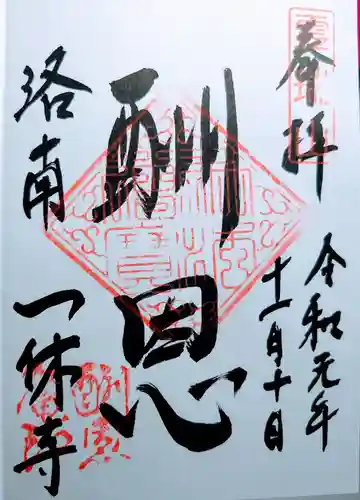 奉拝
令和元年
十一月十日
酬恩
洛南
一休寺